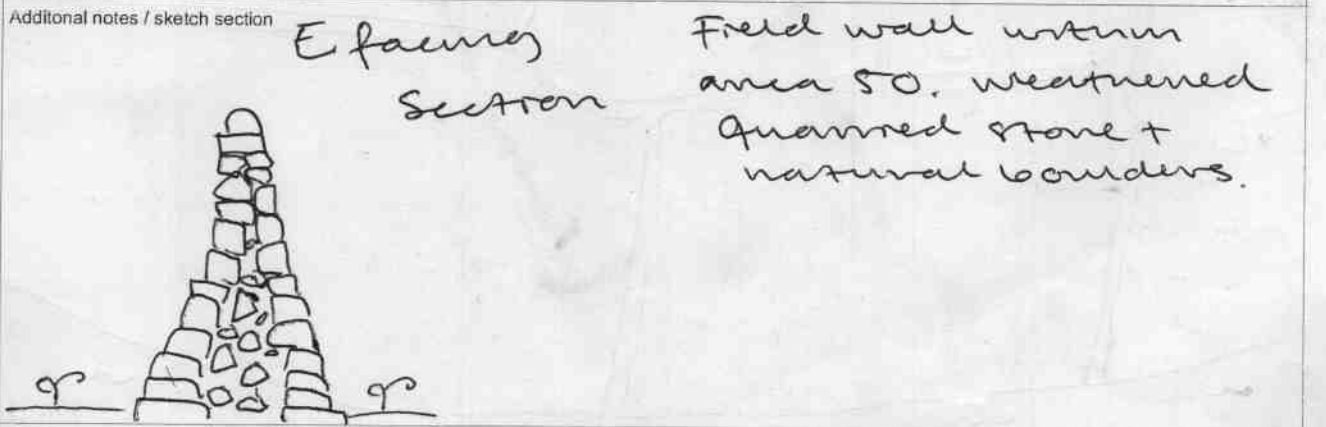 Additonal notes / sketch section
E facing
Section
Field wall within
area 50. weathered
Quarried stone +
natural boulders.